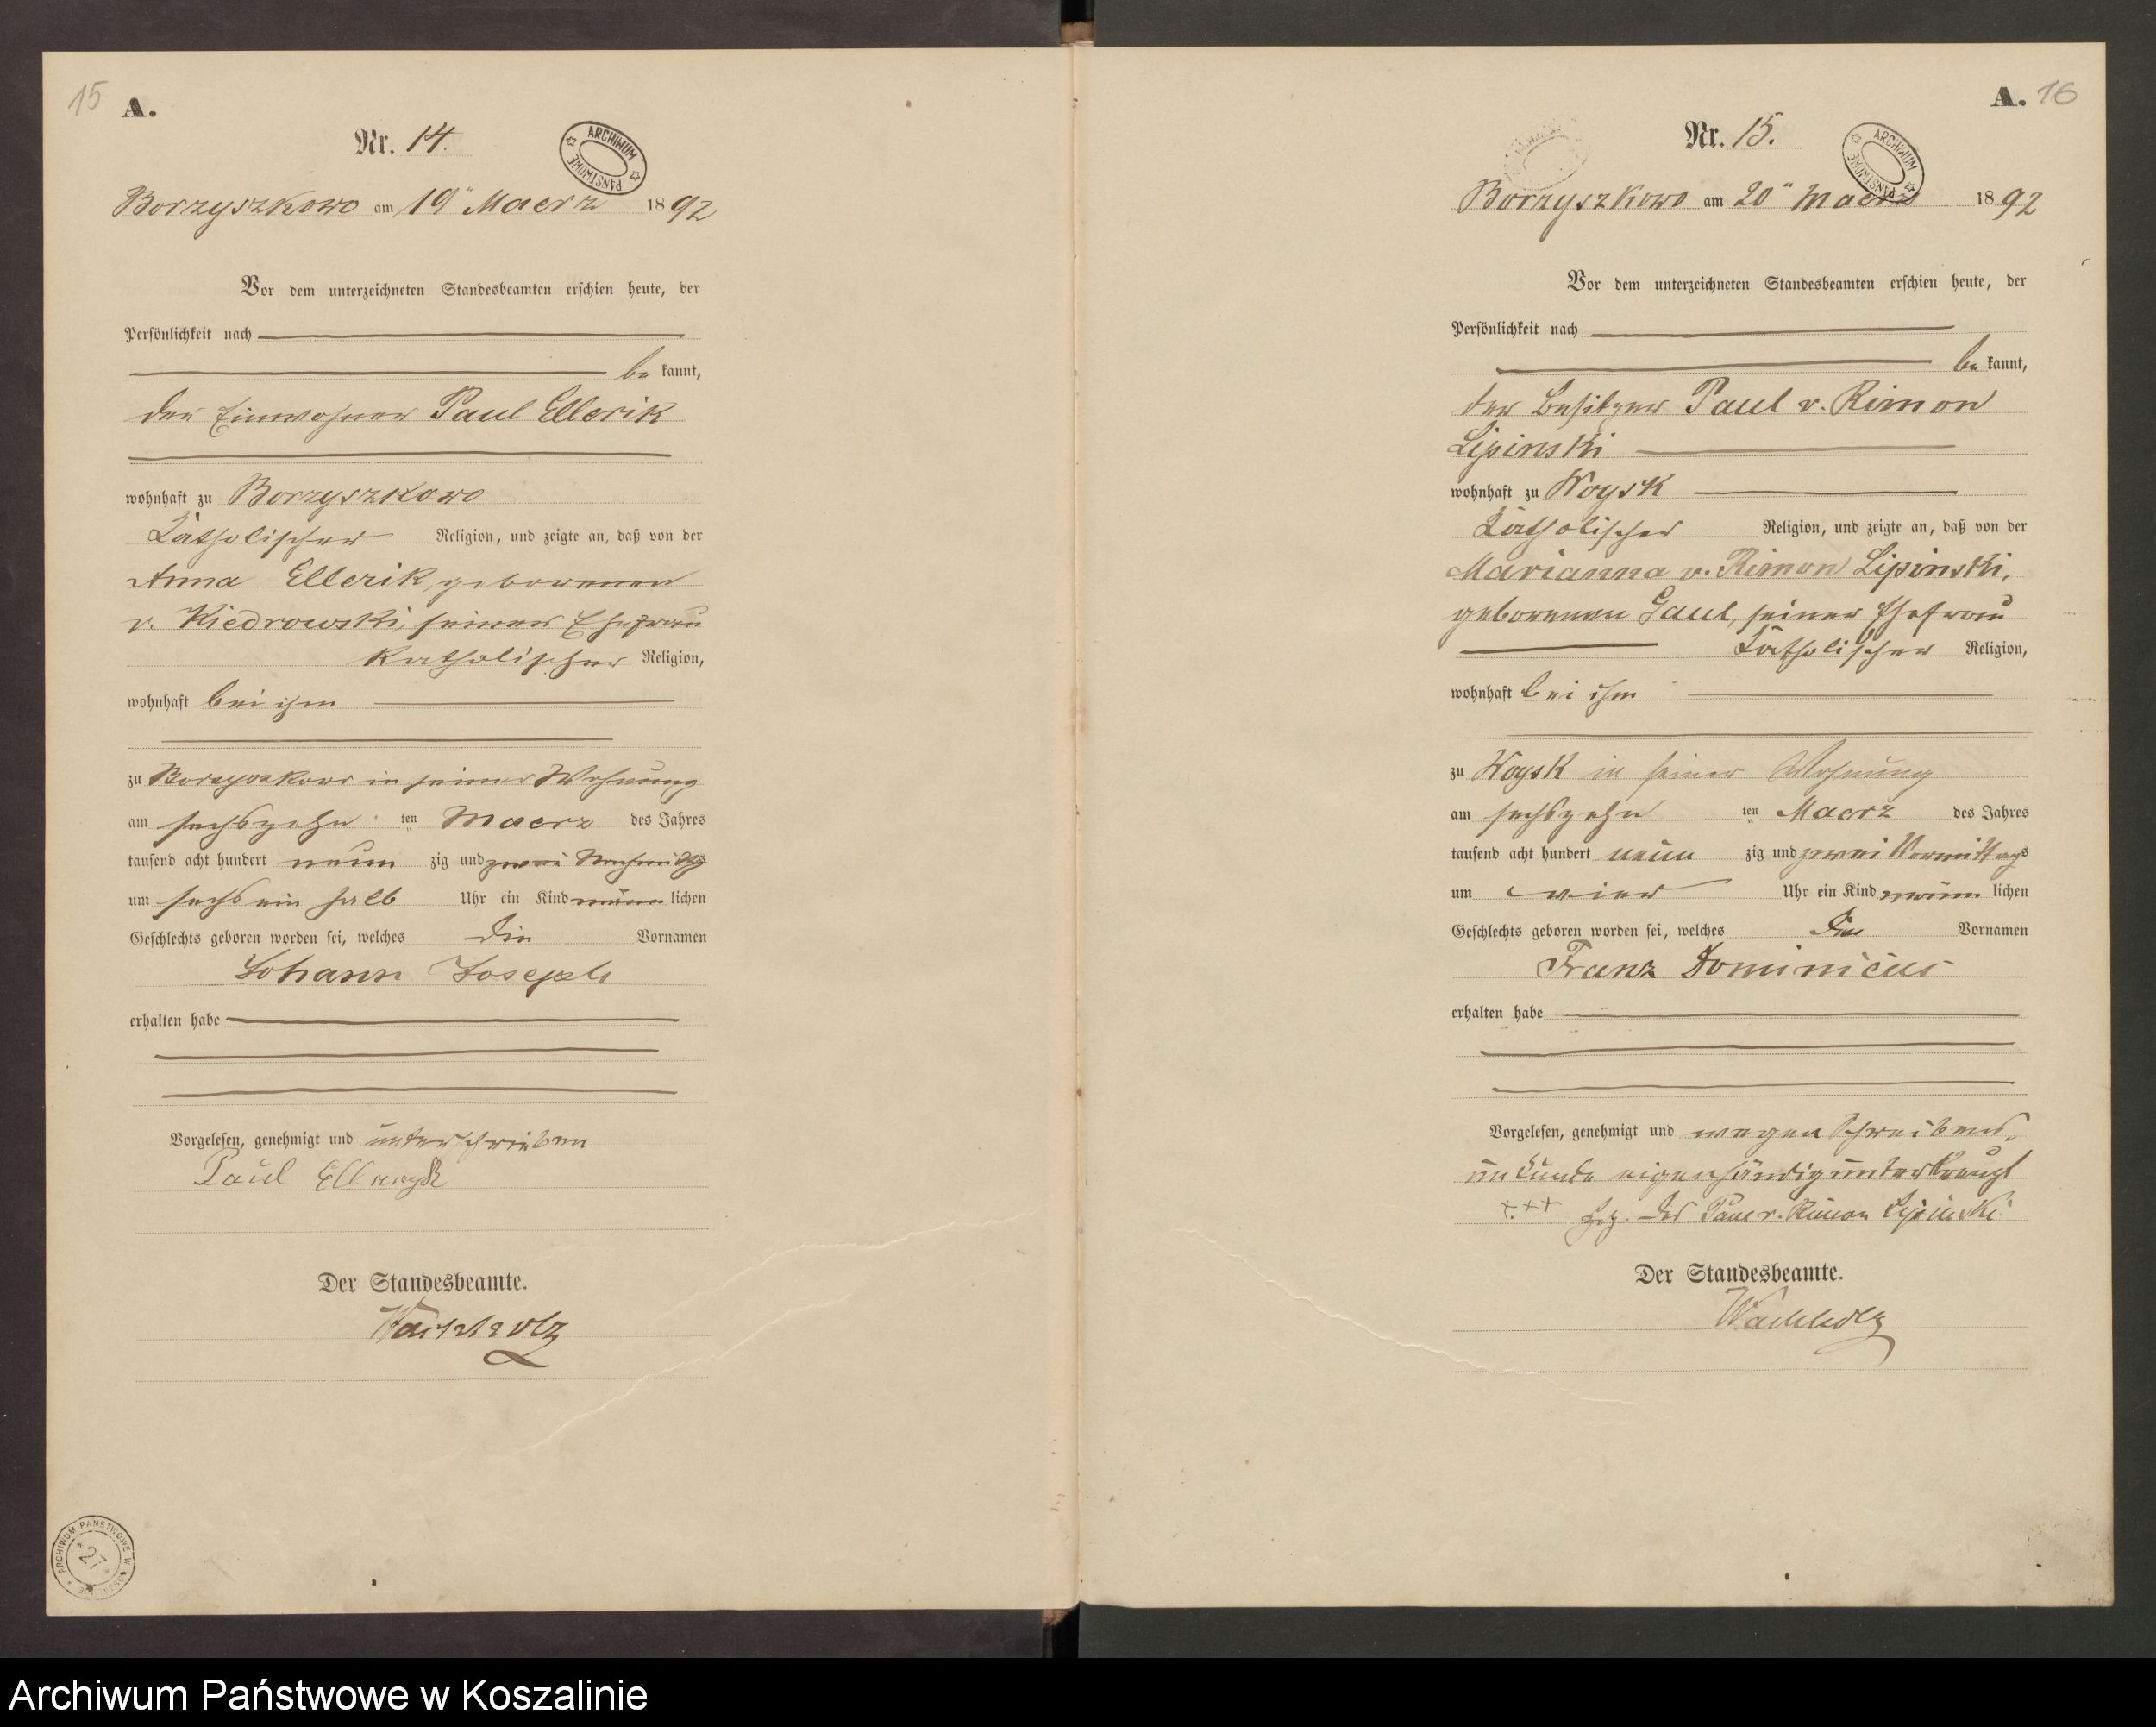 15
A.
ARCHIWUM PAŃSTWOWE
Nr. 14.
Borzyszkowo am 19" Maerz 1892
Vor dem unterzeichneten Standesbeamten erschien heute, der
Persönlichkeit nach
be kannt,
der Einwohner Paul Ellerik
wohnhaft zu Borzyszkowo
katholischer Religion, und zeigte an, daß von der
Anna Ellerik, geborenen
v. Kiedrowski, seiner Ehefrau
katholischer Religion,
wohnhaft bei ihm
zu Borzyszkowo in seiner Wohnung
am sechszehn ten Maerz des Jahres
tausend acht hundert neun zig und zwei Nachmittags
um sechs ein halb Uhr ein Kind männ lichen
Geschlechts geboren worden sei, welches die Vornamen
Johann Joseph
erhalten habe
Vorgelesen, genehmigt und unterschrieben
Paul
Der Standesbeamte.
Wachholz
ARCHIWUM PAŃSTWOWE W KOSZALINIE
27
A. 16
ARCHIWUM PAŃSTWOWE
Nr. 15.
Borzyszkowo am 20" Maerz 1892
Vor dem unterzeichneten Standesbeamten erschien heute, der
Persönlichkeit nach
be kannt,
der Besitzer Paul v. Rimon
Lipinski
wohnhaft zu Woysk
katholischer Religion, und zeigte an, daß von der
Marianna v. Rimon Lipinski,
geborenen Gaul, seiner Ehefrau
katholischer Religion,
wohnhaft bei ihm
zu Woysk in seiner Wohnung
am sechszehn ten Maerz des Jahres
tausend acht hundert neun zig und zwei Vormittags
um vier Uhr ein Kind männ lichen
Geschlechts geboren worden sei, welches die Vornamen
Franz Dominicus
erhalten habe
Vorgelesen, genehmigt und wegen Schreibens
unkunde eigenhändig unterkreuzt
+++ Hz. des Paul v. Rimon Lipinski
Der Standesbeamte.
Wachholz
Archiwum Państwowe w Koszalinie